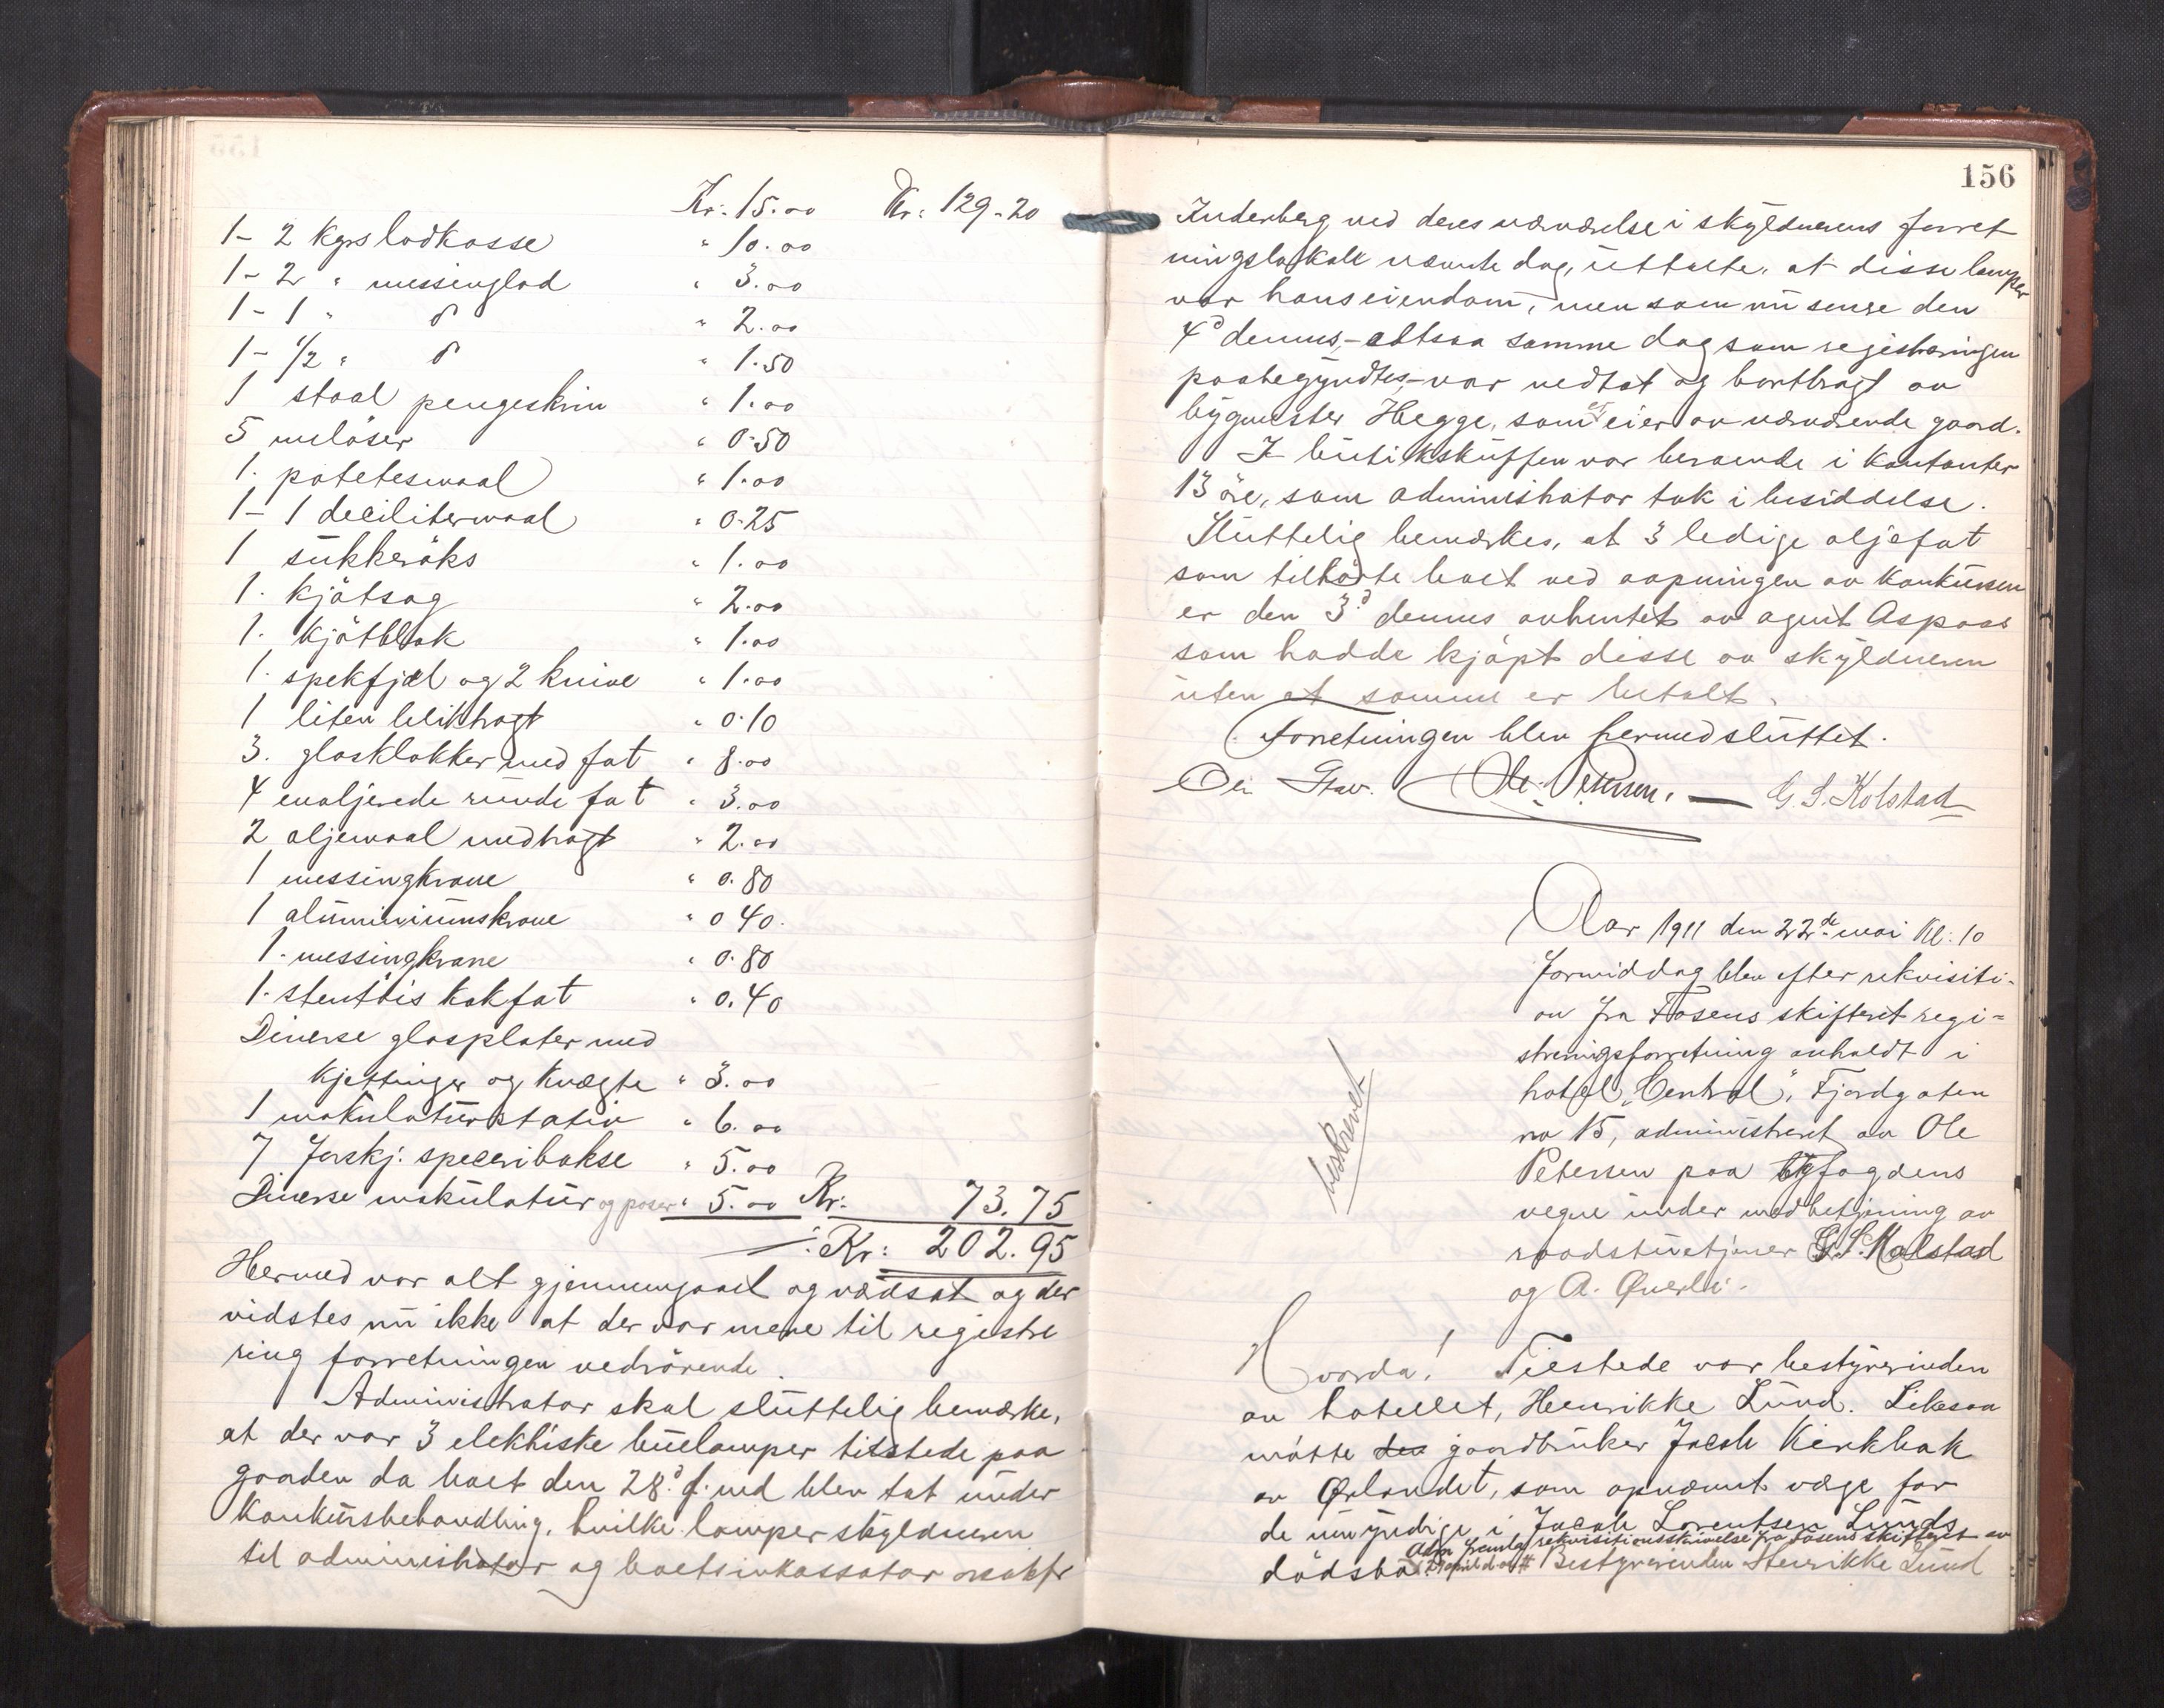 Kr. 15.00 Kr. 129.20
1- 2 kgrs lodkasse " 10.00
1- 2 " messinglod " 3.00
1- 1 " do " 2.00
1- 1/2 " do " 1.50
1 staal pengeskrin " 1.00
5 meløser " 0.50
1. potetesmaal " 1.00
1- 1 decilitermaal " 0.25
1 sukkerøks " 1.00
1. kjøtsag " 2.00
1. kjøtblok " 1.00
1. spekfjæl og 2 knive " 1.00
1 liten bliktragt " 0.10
3. glasklokker med fat " 8.00
4 emaljerede runde fat " 3.00
2 oljemaal med tragt " 2.00
1 messingkrane " 0.80
1 aluminiumskrane " 0 40.
1. messingkrane " 0.80
1. stentøis kakfat " 0.40
Diverse glasplater med
kjettinger og knægte " 3.00
1 makulaturstativ " 6.00
7 forskj: speceribokse " 5.00
Diverse makulatur og poser " 5.00 Kr: 73.75
Kr: 202.95
Hermed var alt gjennemgaaet og værdsat og der
vidstes nu ikke at der var mere til registre
ring forretningen vedrørende.
Administrator skal sluttelig bemærke,
at der var 3 elektriske buelamper tilstede paa
gaarden da boet den 28d f. md blev tat under
konkursbehandling, hvilke lamper skyldneren
til administrator og boets inkassator
156
Inderberg ved deres nærværelse i skyldnerens forret
ningslokale nævnte dag, uttalte, at disse lamper
var hans eiendom, men som nu senere den
4d dennes,- altsaa samme dag som registreringen
paabegyndtes,- var nedtat og bortbragt av
bygmester Hegge, som er eier av nærværende gaard.
I butikskuffen var beroende i kontanter
13 øre, som administrator tok i besiddelse.
Sluttelig bemærkes, at 3 ledige oljefat
som tilhørte boet ved aapningen av konkursen
er den 3d dennes avhentet av agent Aspaas
som hadde kjøpt disse av skyldneren
uten at samme er betalt.
Forretningen blev hermed sluttet.
Ole Petersen. — G. S. Kolstad
Aar 1911 den 22de mai Kl. 10
formiddag blev efter rekvisiti-
on fra Fosens skifteret regi-
streringsforretning avholdt i
hotel "Central", Fjordgaten
no 15, administreret av Ole
Petersen paa byfogdens
vegne under medbetjening av
raadstuetjener G. S. Kolstad
og A. Qverli.
beskrevet
Hvorda! Tilstede var bestyrerinden
av hotellet, Henrikke Lund. Likesaa
møtte den gaardbruker Jacob Kirkbak
av Ørlandet, som opnævnt værge for
de umyndige i Jacob Lorentsen Lunds
Adm. freml. rekvisitionsskrivelse fra Fosens skifteret av
29 april d. a. #
dødsbo. Bestyrerinden Henrikke Lund